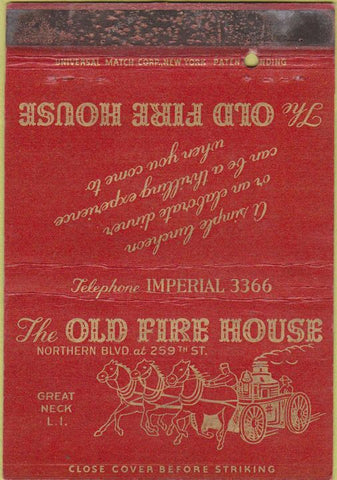 UNIVERSAL MATCH CORP., NEW YORK PATENT PENDING
The OLD FIRE HOUSE
A simple luncheon
or an elaborate dinner
can be a thrilling experience
when you come to
Telephone IMPERIAL 3366
The OLD FIRE HOUSE
NORTHERN BLVD. at 259TH ST.
GREAT
NECK
L. I.
CLOSE COVER BEFORE STRIKING